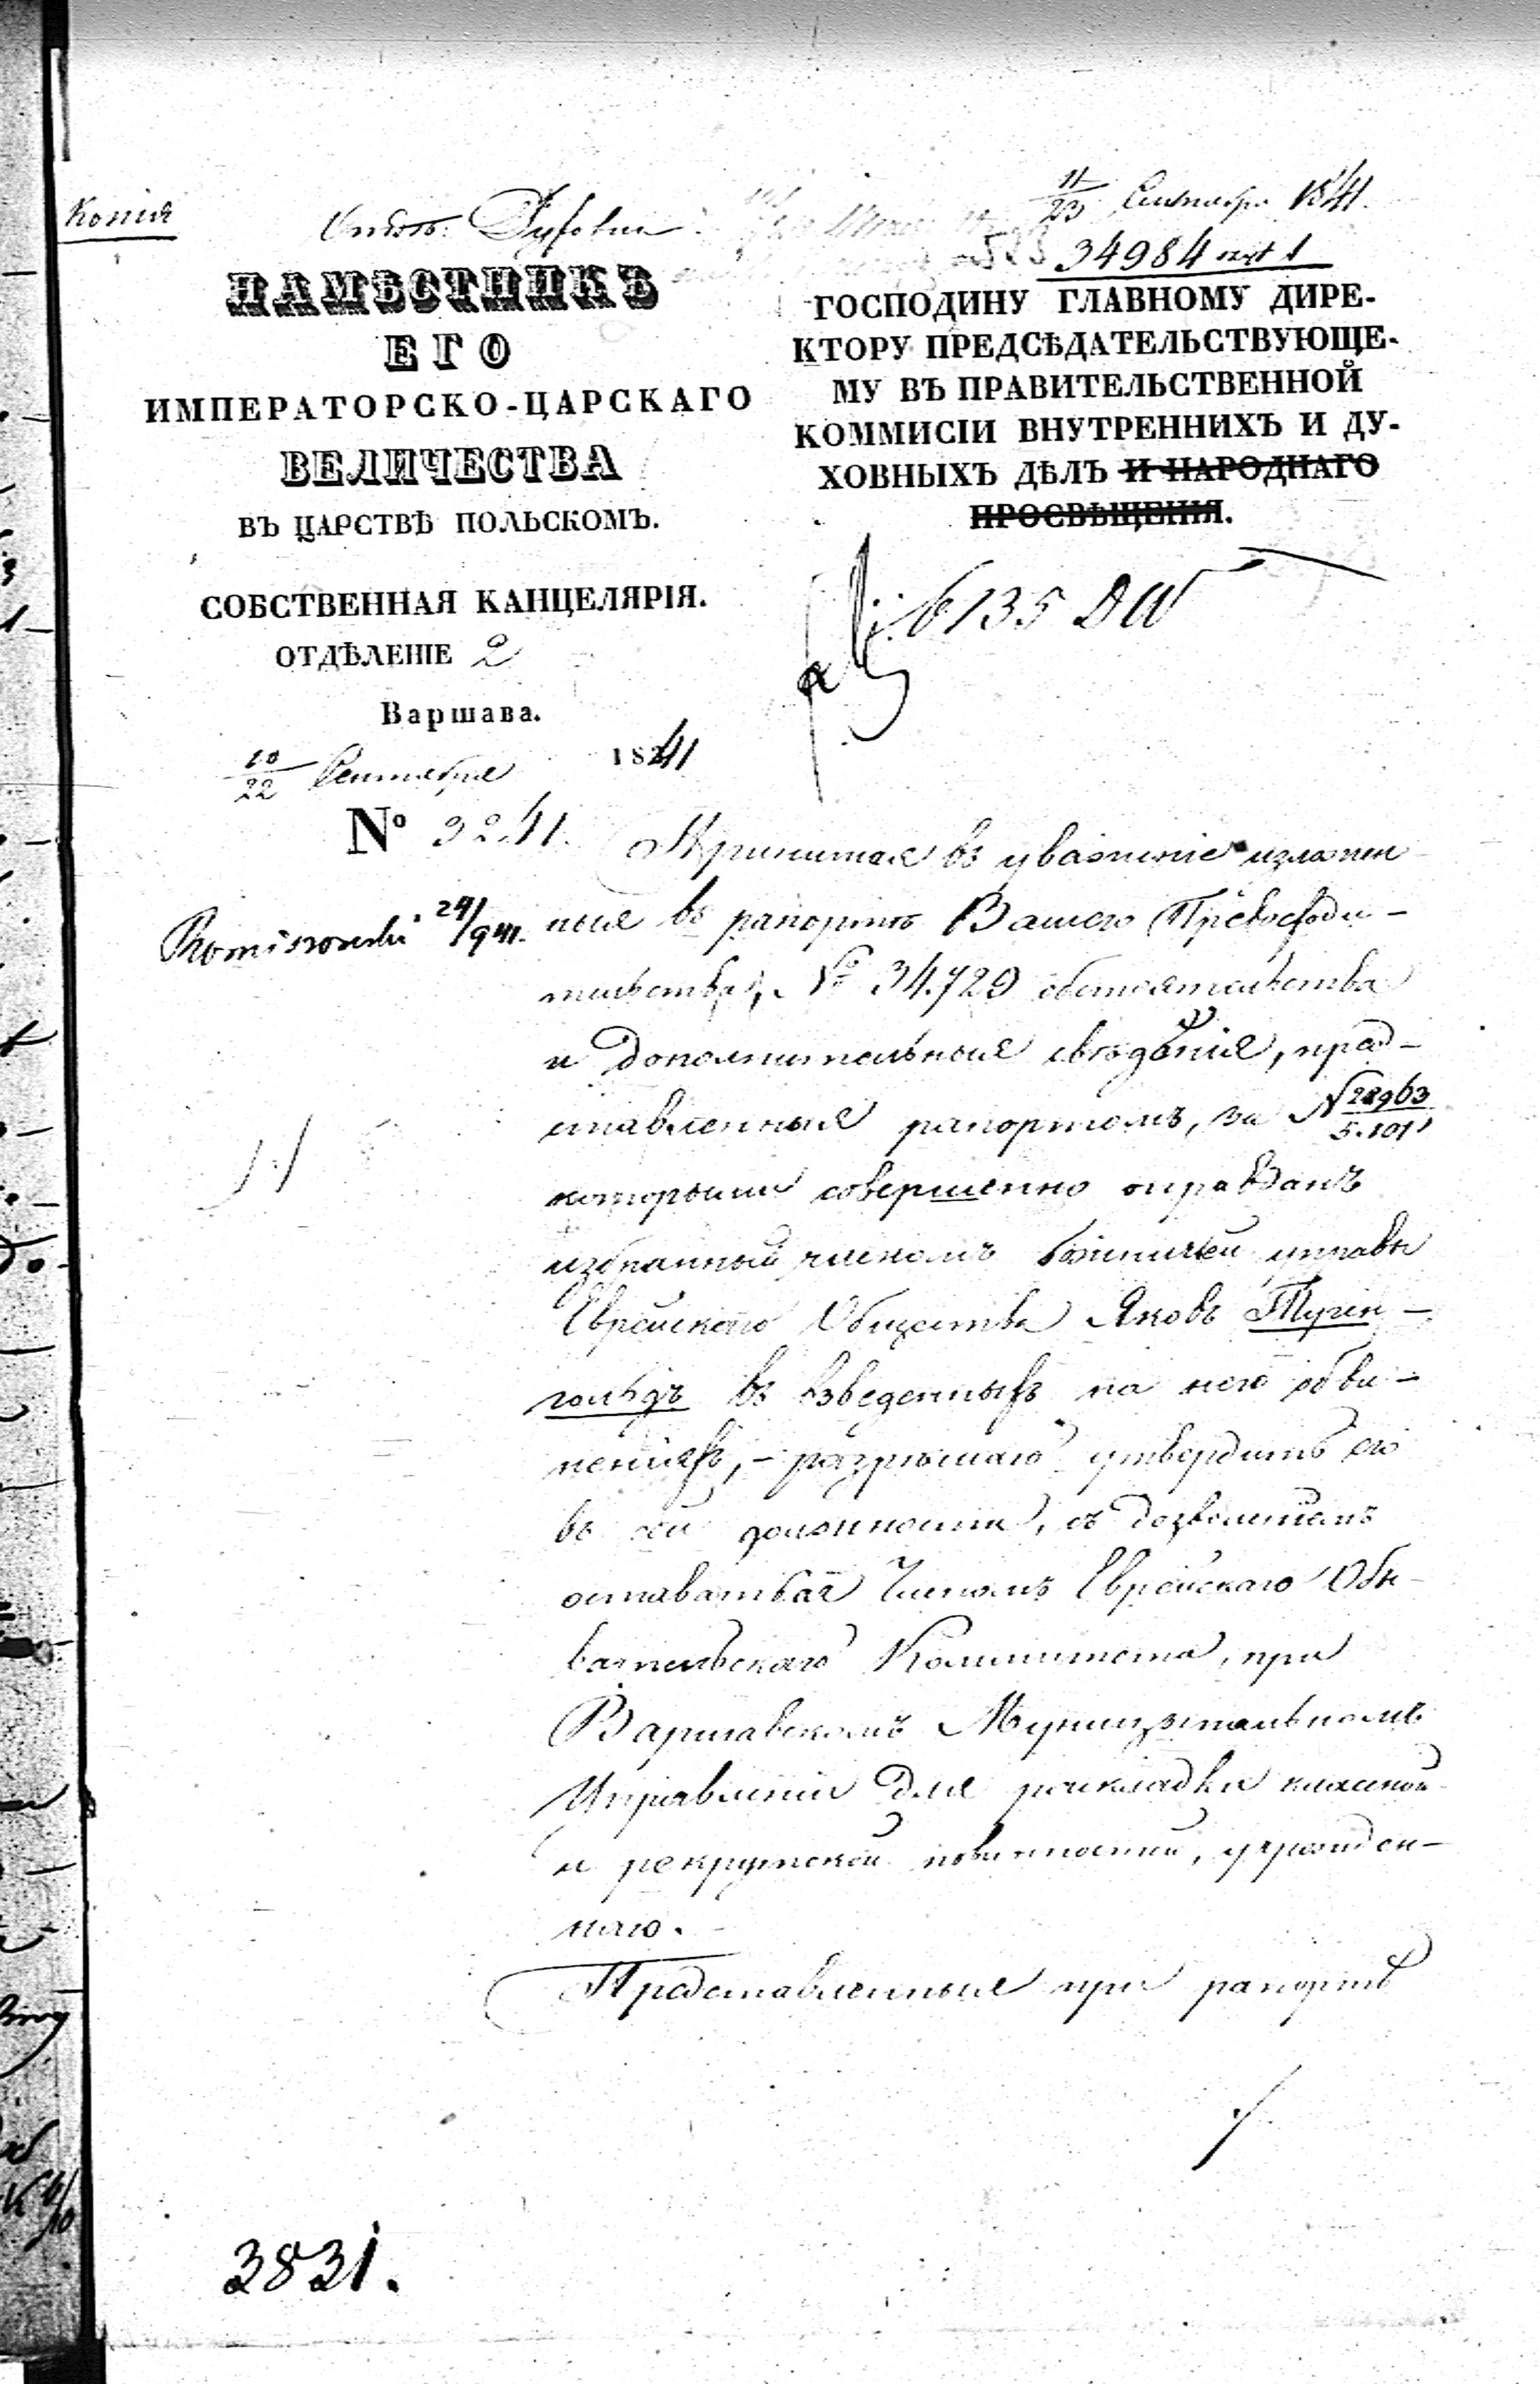 Копія
11/23 Сентября 1841.
34984
НАМѢСТНИКЪ
ЕГО
ИМПЕРАТОРСКО-ЦАРСКАГО
ВЕЛИЧЕСТВА
ВЪ ЦАРСТВѢ ПОЛЬСКОМЪ.
СОБСТВЕННАЯ КАНЦЕЛЯРІЯ.
ОТДѢЛЕНІЕ 2
Варшава.
10/22 Сентября 1841
№ 3241.
ГОСПОДИНУ ГЛАВНОМУ ДИРЕ-
КТОРУ ПРЕДСѢДАТЕЛЬСТВУЮЩЕ-
МУ ВЪ ПРАВИТЕЛЬСТВЕННОЙ
КОММИСІИ ВНУТРЕННИХЪ И ДУ-
ХОВНЫХЪ ДѢЛЪ И НАРОДНАГО
ПРОСВѢЩЕНІЯ.
6135 DW
24/9 41.
Принимая въ уваженіе изложен
ныя въ рапортѣ Вашего Превосходи-
тельства, № 34.729 обстоятельства
и дополнительныя свѣдѣнія, пред-
ставленныя рапортомъ, за N 28963/5.101,
которыми совершенно оправданъ
избранный членомъ божничьей управы
Еврейскаго Общества Яковъ Туген-
гольдъ въ взведенныхъ на него обви-
неніяхъ, - разрѣшаю утвердить его
въ сей должности, съ дозволеніемъ
оставаться Членомъ Еврейскаго Обы-
вательскаго Комитета, при
Варшавскомъ Муниципальномъ
Управленіи для раскладки
и рекрутской повинностей, учрежден-
наго.
Представленныя при рапортѣ
./.
3831.